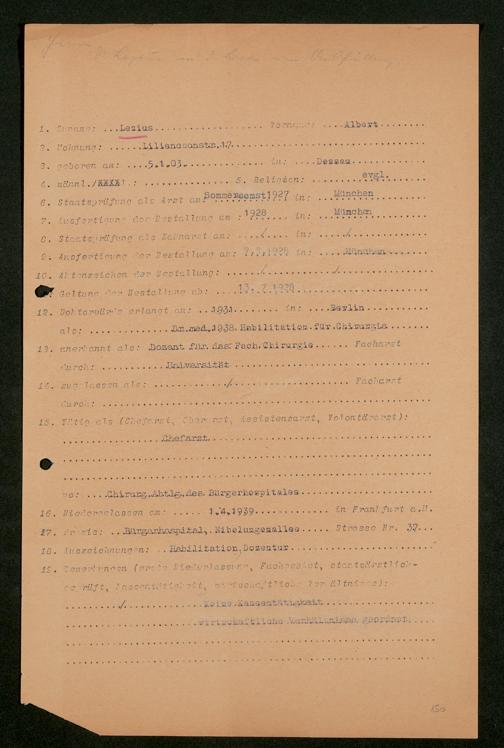 1. Zuname: ...Lezius............ Vorname: ....Albert......
2. Wohnung: ......Liliencronstr.17..........
3. geboren am: .....5.1.03.......... in: .....Dessau.....
4. männl./XXXX: ........ 5. Religion: ........evgl.
6. Staatsprüfung als Arzt am: Sommersemst1927 in: .....München
7. Ausfertigung der Bestallung am .1928 ..... in: .....München
8. Staatsprüfung als Zahnarzt am: ..../.... in: ..../....
9. Ausfertigung der Bestallung am: 7.7.1928 in: ...München....
10. Aktenzeichen der Bestallung: ......./......../......
Geltung der Bestallung ab: ....13. 7.1928
12. Doktorwürde erlangt am: ...1931........ in: .....Berlin
als: ..........Dr.med.1938 Habilitation für Chirurgie
13. anerkannt als: Dozent für das Fach Chirurgie...... Facharzt
durch: .........Universität
14. zugelassen als: ........../.......... Facharzt
durch: ..........
15. Tätig als (Chefarzt, Oberarzt, Assistenzarzt, Volontärarzt):
..........Chefarzt..........
wo: ....Chirurg.Abtlg.des Bürgerhospitales
16. Niedergelassen am: .....1.4.1939.......... in Frankfurt a.M.
17. Praxis: ..Bürgerhospital, Nibelungenallee.. Strasse Nr. 37...
18. Auszeichnungen: ..Habilitation,Dozentur..........
19. Bemerkungen (erste Niederlassung, Fachgebiet, staatsärztlich-
geprüft, Kassentätigkeit, wirtschaftliche Verhältnisse):
........./......... Keine Kassentätigkeit
wirtschaftliche Verhältnisse geordnet